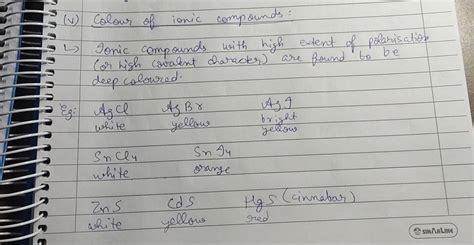 (v) Colour of ionic compounds :
↳ Ionic compounds with high extent of polarisation
(or high covalent character) are found to be
deep coloured.
Eg: AgCl AgBr AgI
white yellow bright
yellow
SnCl4 SnI4
white orange
ZnS CdS HgS (cinnabar)
white yellow red